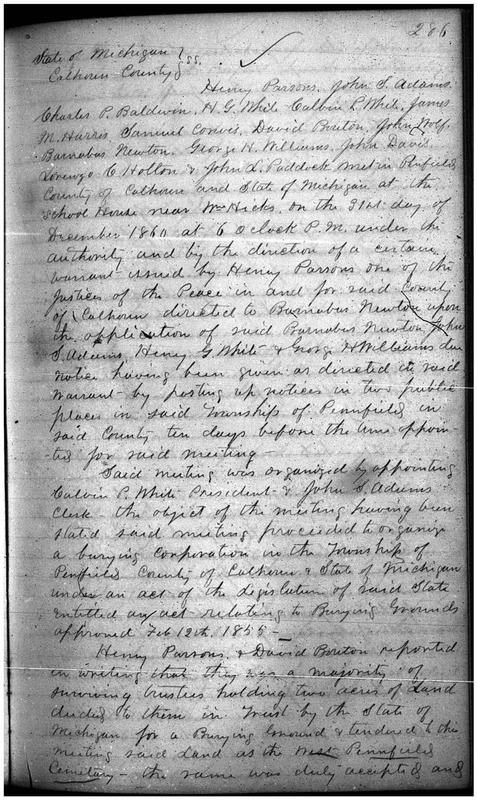 286
State of Michigan } ss.
Calhoun County }
Henry Parsons, John S. Adams
Charles P. Baldwin, H. G. White Calvin P. White, James
M. Harris, Samuel Convis, David Bouton, John Wolf,
Barnabus Newton, George H. Williams, John Davis
Lorenzo C Holton & John L. Paddock met in Penfield
County of Calhoun and State of Michigan at the
School House near Wm Hicks, on the 31st day of
December 1860 at 6 O clock P. M. under the
authority and by the direction of a certain
warrant issued by Henry Parsons one of the
Justices of the Peace in and for said County
of Calhoun directed to Barnabus Newton upon
the application of said Barnabus Newton, John
S. Adams, Henry G. White & George H Williams due
notice having been given as directed in said
warrant by posting up notices in two public
places in said Township of Pennfield in
said County ten days before the time appoin-
ted for said meeting -
Said meeting was organized by appointing
Calvin P. White President & John S. Adams
Clerk - the object of the meeting having been
stated said meeting proceeded to organize
a burying corporation in the Township of
Penfield County of Calhoun & State of Michigan
under an act of the Legislature of said State
entitled an act relating to Burying Grounds
approved Feb 12th, 1855 -
Henry Parsons, & David Bouton reported
in writing that they as a majority of
surviving trustees holding two acres of Land
deeded to them in Trust by the State of
Michigan for a Burying Ground & tendered to this
meeting said Land as the West Pennfield
Cemetary - the same was duly accepted and